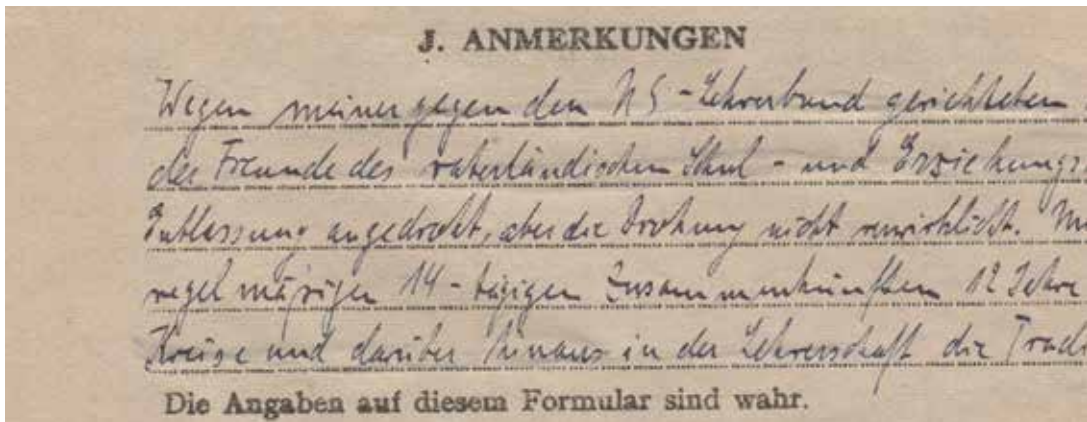 J. ANMERKUNGEN
Wegen meiner gegen den NS-Lehrerbund gerichteten
der Freunde des vaterländischen Schul- und Erziehungs
Entlassung angedroht, aber die Drohung nicht verwirklicht.
regelmäßigen 14-tägigen Zusammenkünften 12 Jahre
Kreise und darüber hinaus in der Lehrerschaft die Trad
Die Angaben auf diesem Formular sind wahr.